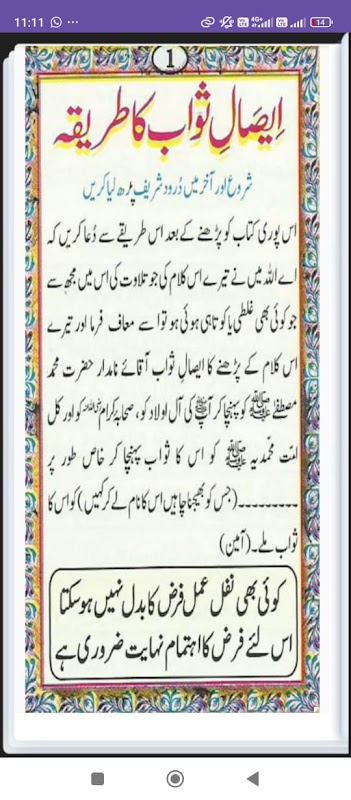 11:11
4G+
14
1
ایصالِ ثواب کا طریقہ
شروع اور آخر میں دُرود شریف پڑھ لیا کریں
اس پوری کتاب کو پڑھنے کے بعد اس طریقے سے دُعا کریں کہ
اے اللہ میں نے تیرے اس کلام کی جو تلاوت کی اس میں مجھ سے
جو کوئی بھی غلطی یا کوتاہی ہوئی ہو تو اسے معاف فرما اور تیرے
اس کلام کے پڑھنے کا ایصالِ ثواب آقائے نامدار حضرت محمد
مصطفےٰ ﷺ کو پہنچا کر آپ ﷺ کی آل اولاد کو، صحابہ کرام کو اور کل
امّت محمّدیہ ﷺ کو اس کا ثواب پہنچا کر خاص طور پر
۔۔۔۔۔۔۔۔۔(جس کو بھیجنا چاہیں اس کا نام لے کر کہیں) کو اس کا
ثواب ملے۔(آمین)
کوئی بھی نفل عمل فرض کا بدل نہیں ہو سکتا
اس لئے فرض کا اہتمام نہایت ضروری ہے